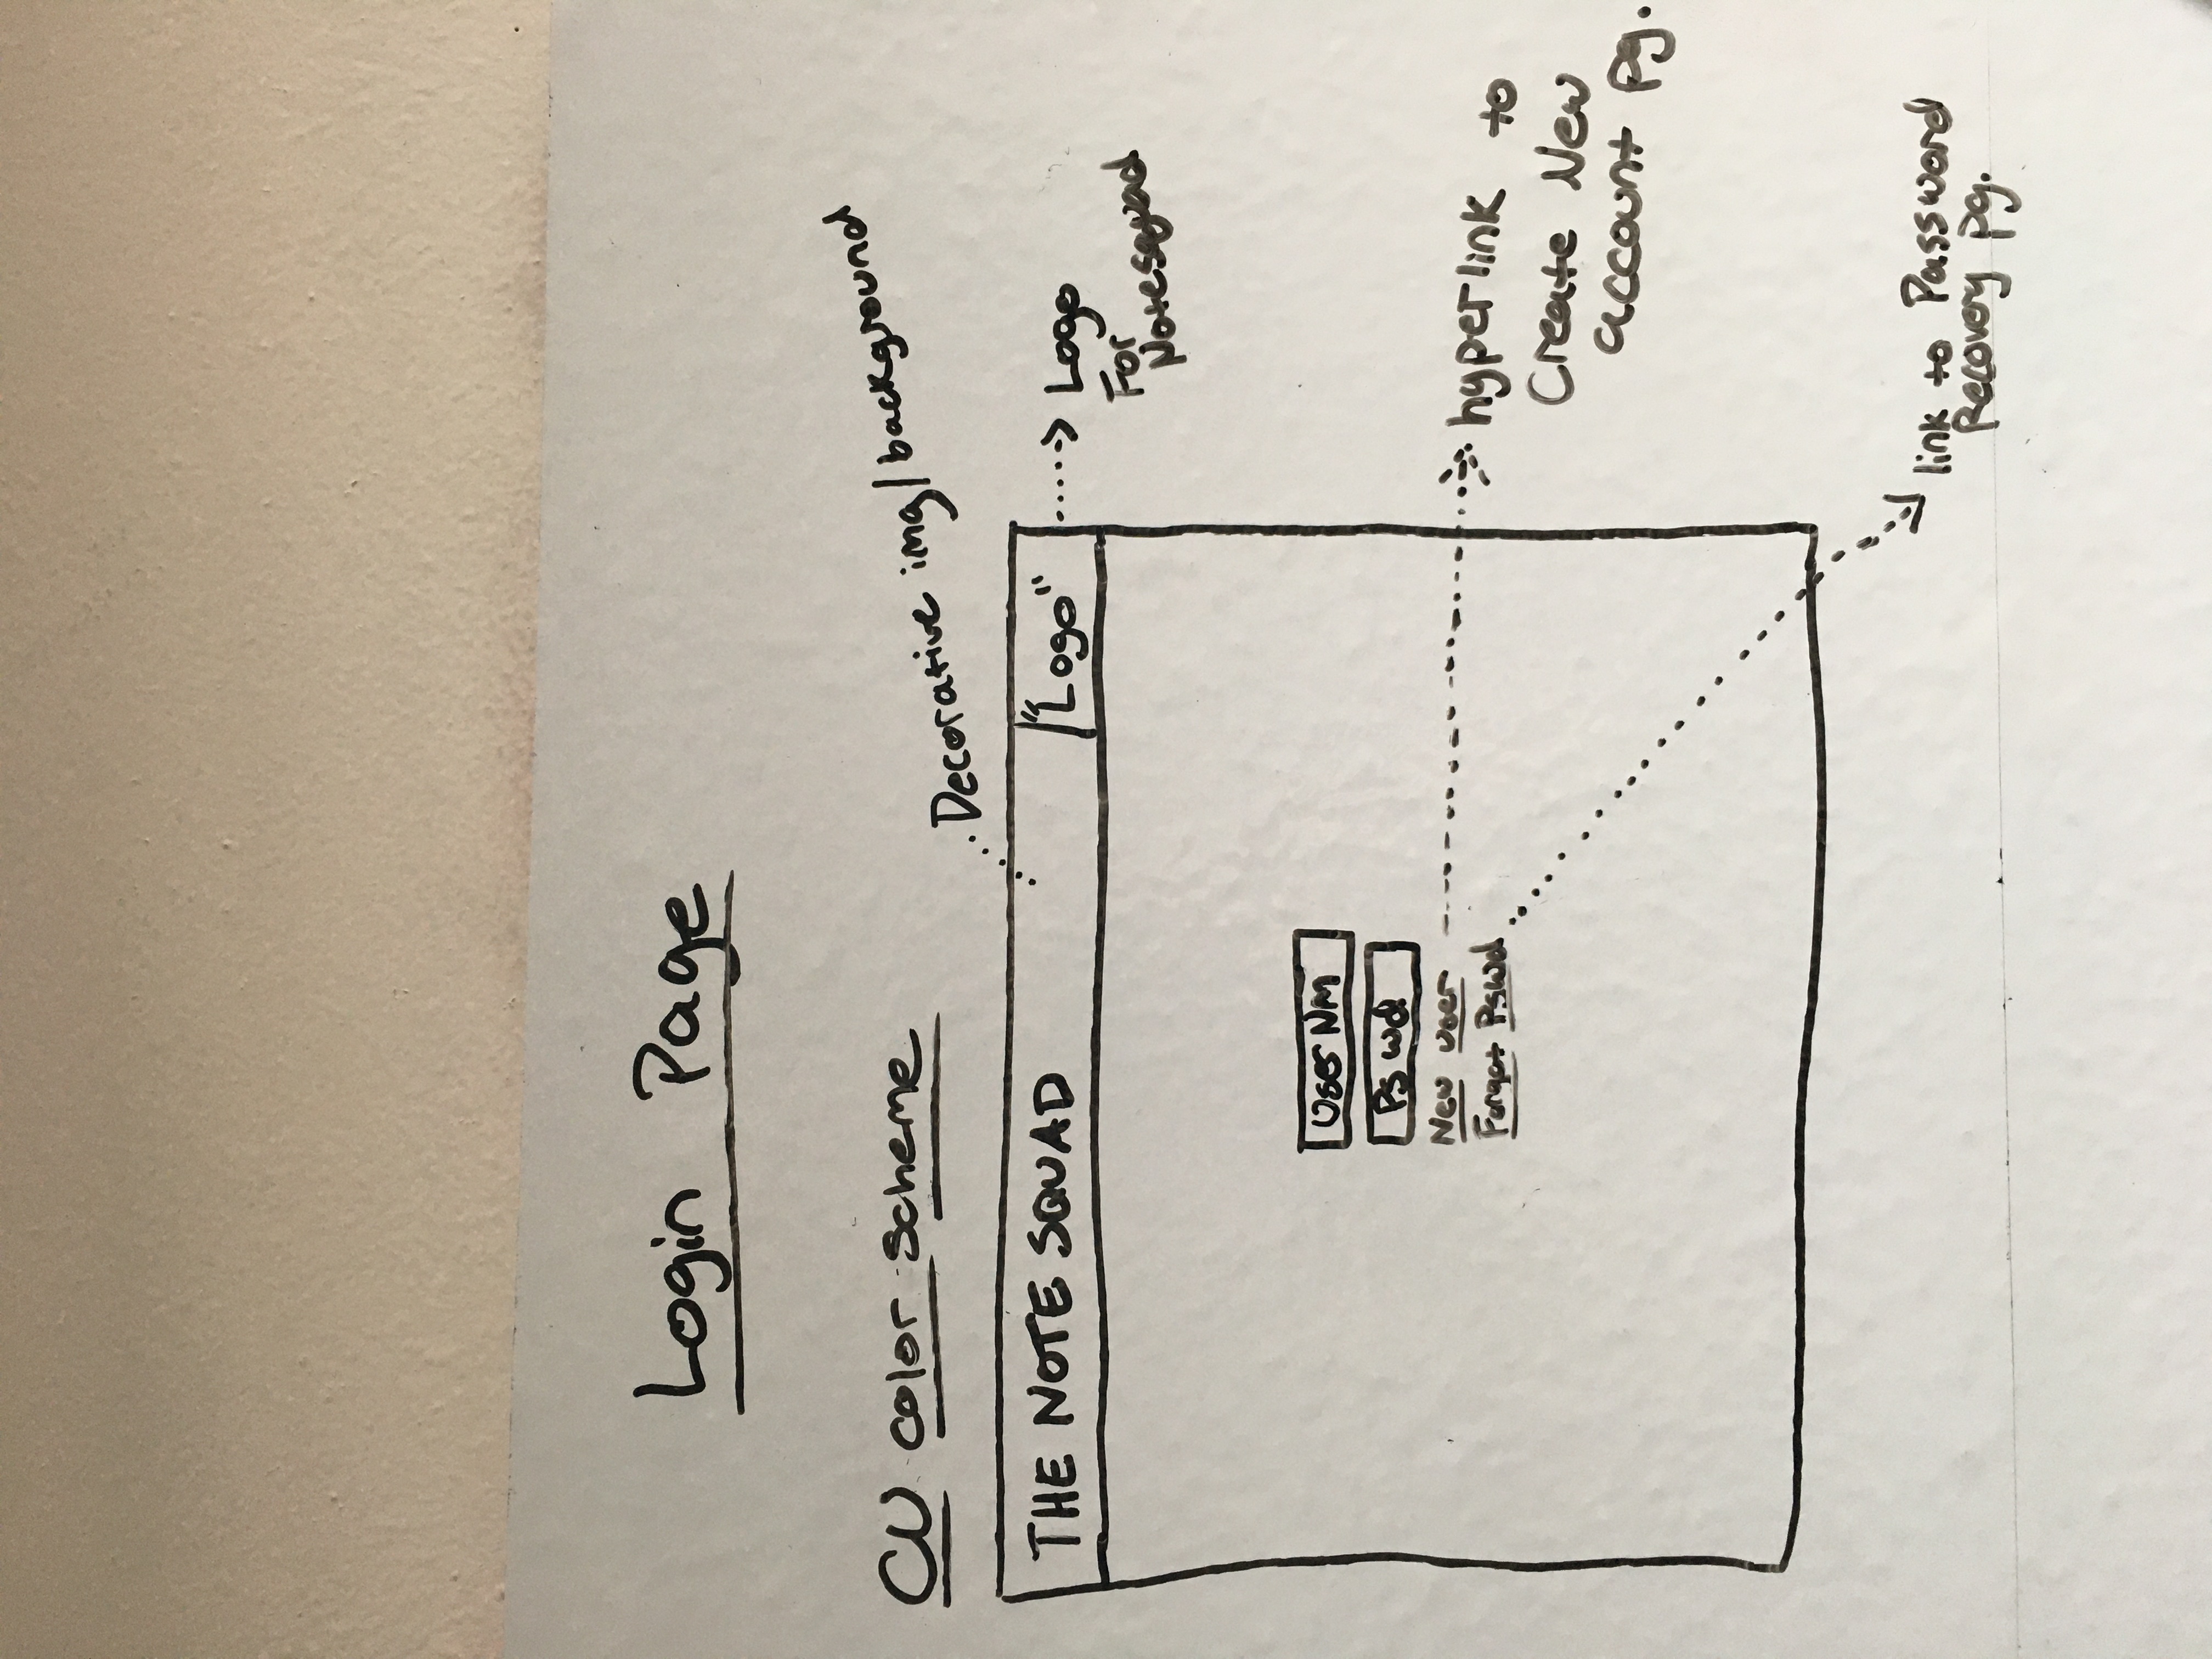 Login Page
CU color scheme
Decorative img/background
THE NOTE SQUAD
"Logo"
Logo
For
Notesquad
User Nm
Pswd
New user
Forgot Pswd
hyperlink to
Create New
account pg.
link to Password
Recovery pg.